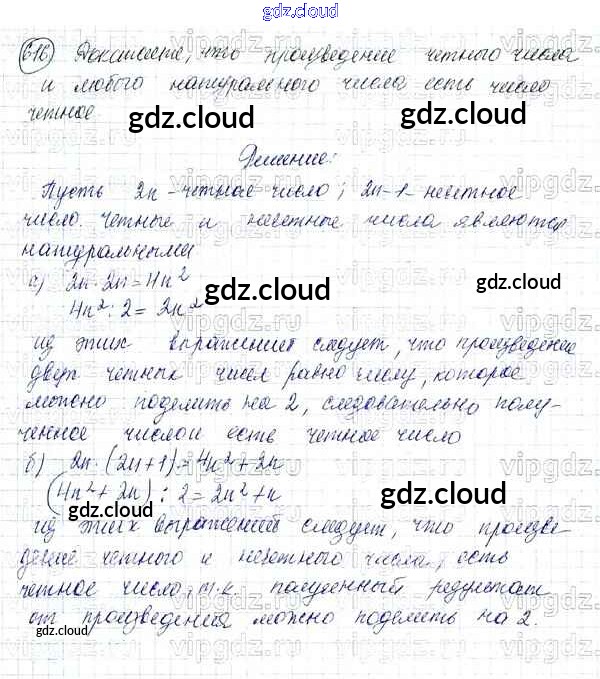 gdz.cloud
616) Докажите, что произведение четного числа
и любого натурального числа есть число
четное.
gdz.cloud gdz.cloud
Решение:
Пусть 2n - четное число; 2n-1 - нечетное
число. Четные и нечетные числа являются
натуральными
а) 2n·2n=4n²
gdz.cloud
4n²:2=2n²
из этих выражений следует, что произведение
двух четных чисел равно числу, которое
можно поделить на 2, следовательно полу-
ченное число есть четное число
б) 2n·(2n+1)=4n²+2n
(4n²+2n):2=2n²+n
gdz.cloud gdz.cloud
из этих выражений следует, что произве
дение четного и нечетного числа, есть
четное число, т.к. полученный результат
gdz.cloud gdz.cloud
от произведения можно поделить на 2.